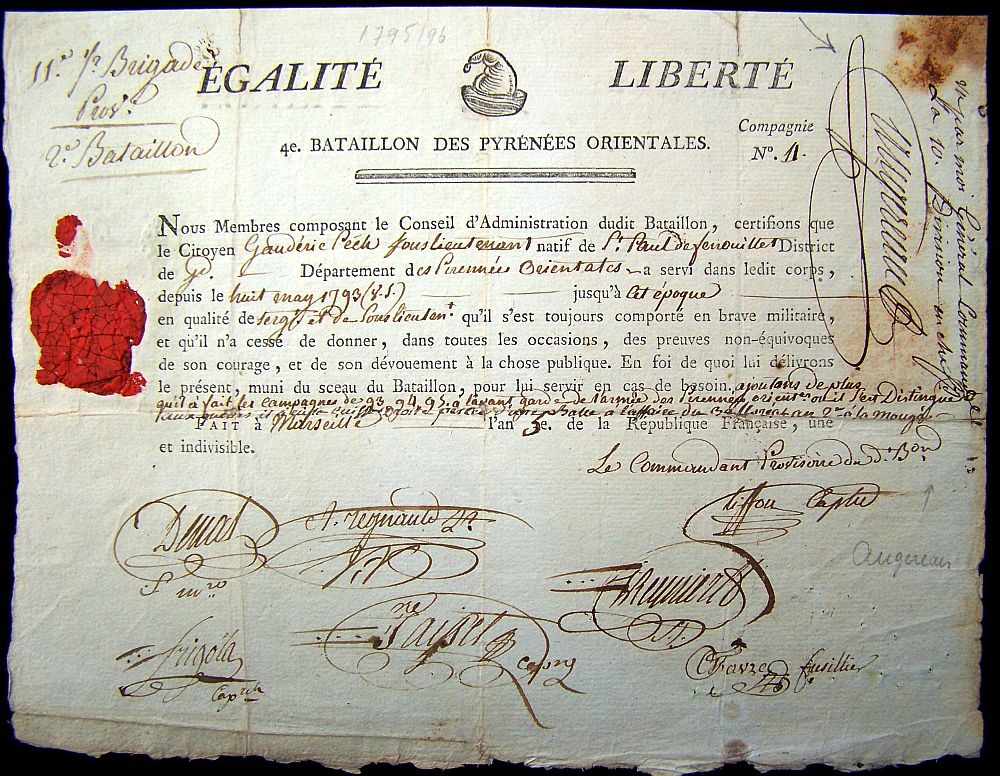 1795/96
11.e 1/2 Brigade
Prov.re
2.e Bataillon
ÉGALITÉ LIBERTÉ
4e. BATAILLON DES PYRÉNÉES ORIENTALES.
Compagnie
N°. 11.
Nous Membres composant le Conseil d'Administration dudit Bataillon, certifions que
le Citoyen Gauderic Pech souslieutenant natif de St. Paul de fenouillet District
de Département des Pirennées Orientales a servi dans ledit corps,
depuis le huit may 1793 (v.s.) jusqu'à cet époque
en qualité de sergt. et de Souslieutent. qu'il s'est toujours comporté en brave militaire,
et qu'il n'a cessé de donner, dans toutes les occasions, des preuves non-équivoques
de son courage, et de son dévouement à la chose publique. En foi de quoi lui délivrons
le présent, muni du sceau du Bataillon, pour lui servir en cas de besoin. ajoutons de plus
qu'il a fait les campagnes de 93, 94, 95, a l'avant garde de l'armée des Pirennées orientes. ou il s'est Distingué
Balle a l'affaire du
FAIT à Marseille l'an 3e. de la République Française, une
et indivisible.
Le Commandant Provisoire du d. Bon.
A. regnauld
Tiffou Capne
Meunier
frigola
Chauza fusillier
Augereau
Vu par moi Général Commandant
La 10 Division